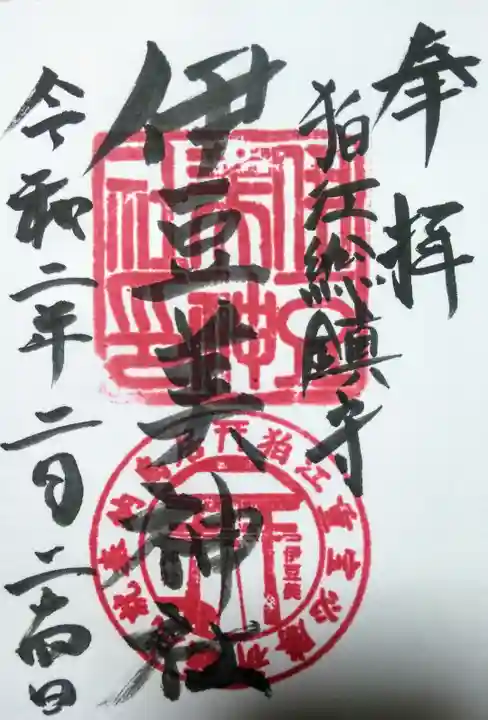 奉拝
狛江総鎮守
伊豆美神社
令和二年二月二十四日
伊豆美